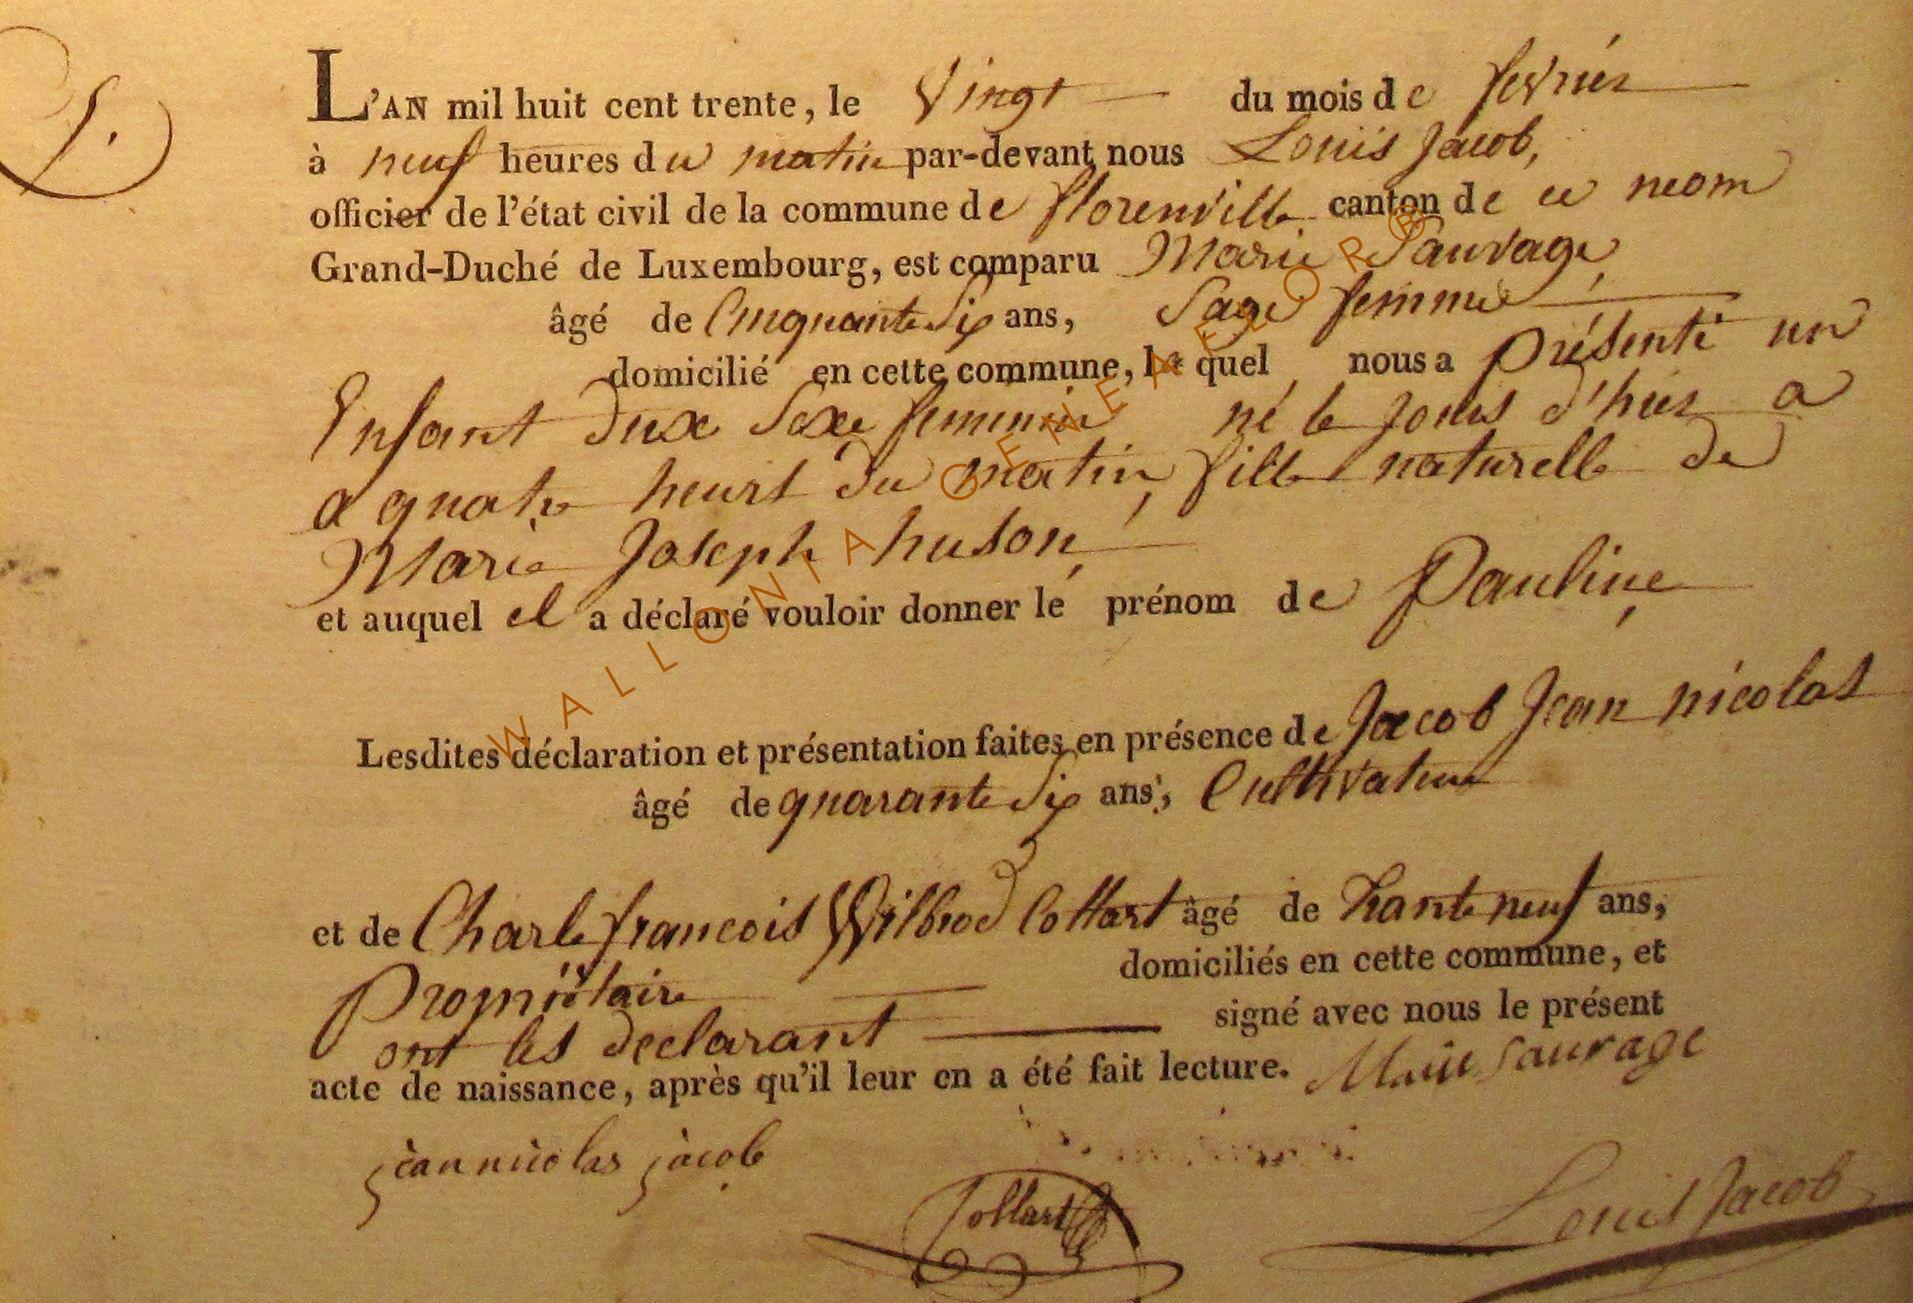 L'AN mil huit cent trente, le Vingt du mois de fevrier
à neuf heures du matin par-devant nous Louis Jacob,
officier de l'état civil de la commune de florenville canton de ce neom
Grand-Duché de Luxembourg, est comparu Marie Sauvage,
âgé de Cinquante Six ans, Sage femme
domicilié en cette commune, la quel nous a présenté un
Enfant dux Sexe feminin né le jours d'hier a
a quatre heurs du matin, fille naturelle de
Marie Joseph huson,
et auquel el a déclaré vouloir donner le prénom de Pauline,
Lesdites déclaration et présentation faites en présence de Jacob Jean nicolas
âgé de quarante Six ans, Cultivateur
et de Charle francois Wilbrod Collart âgé de trante neuf ans,
domiciliés en cette commune, et
Propriétaire
signé avec nous le présent
ont les declarant
acte de naissance, après qu'il leur en a été fait lecture. Marie Sauvage
jean nicolas jacob
Collart
Louis Jacob
WALLONIA GENEAFLOR®